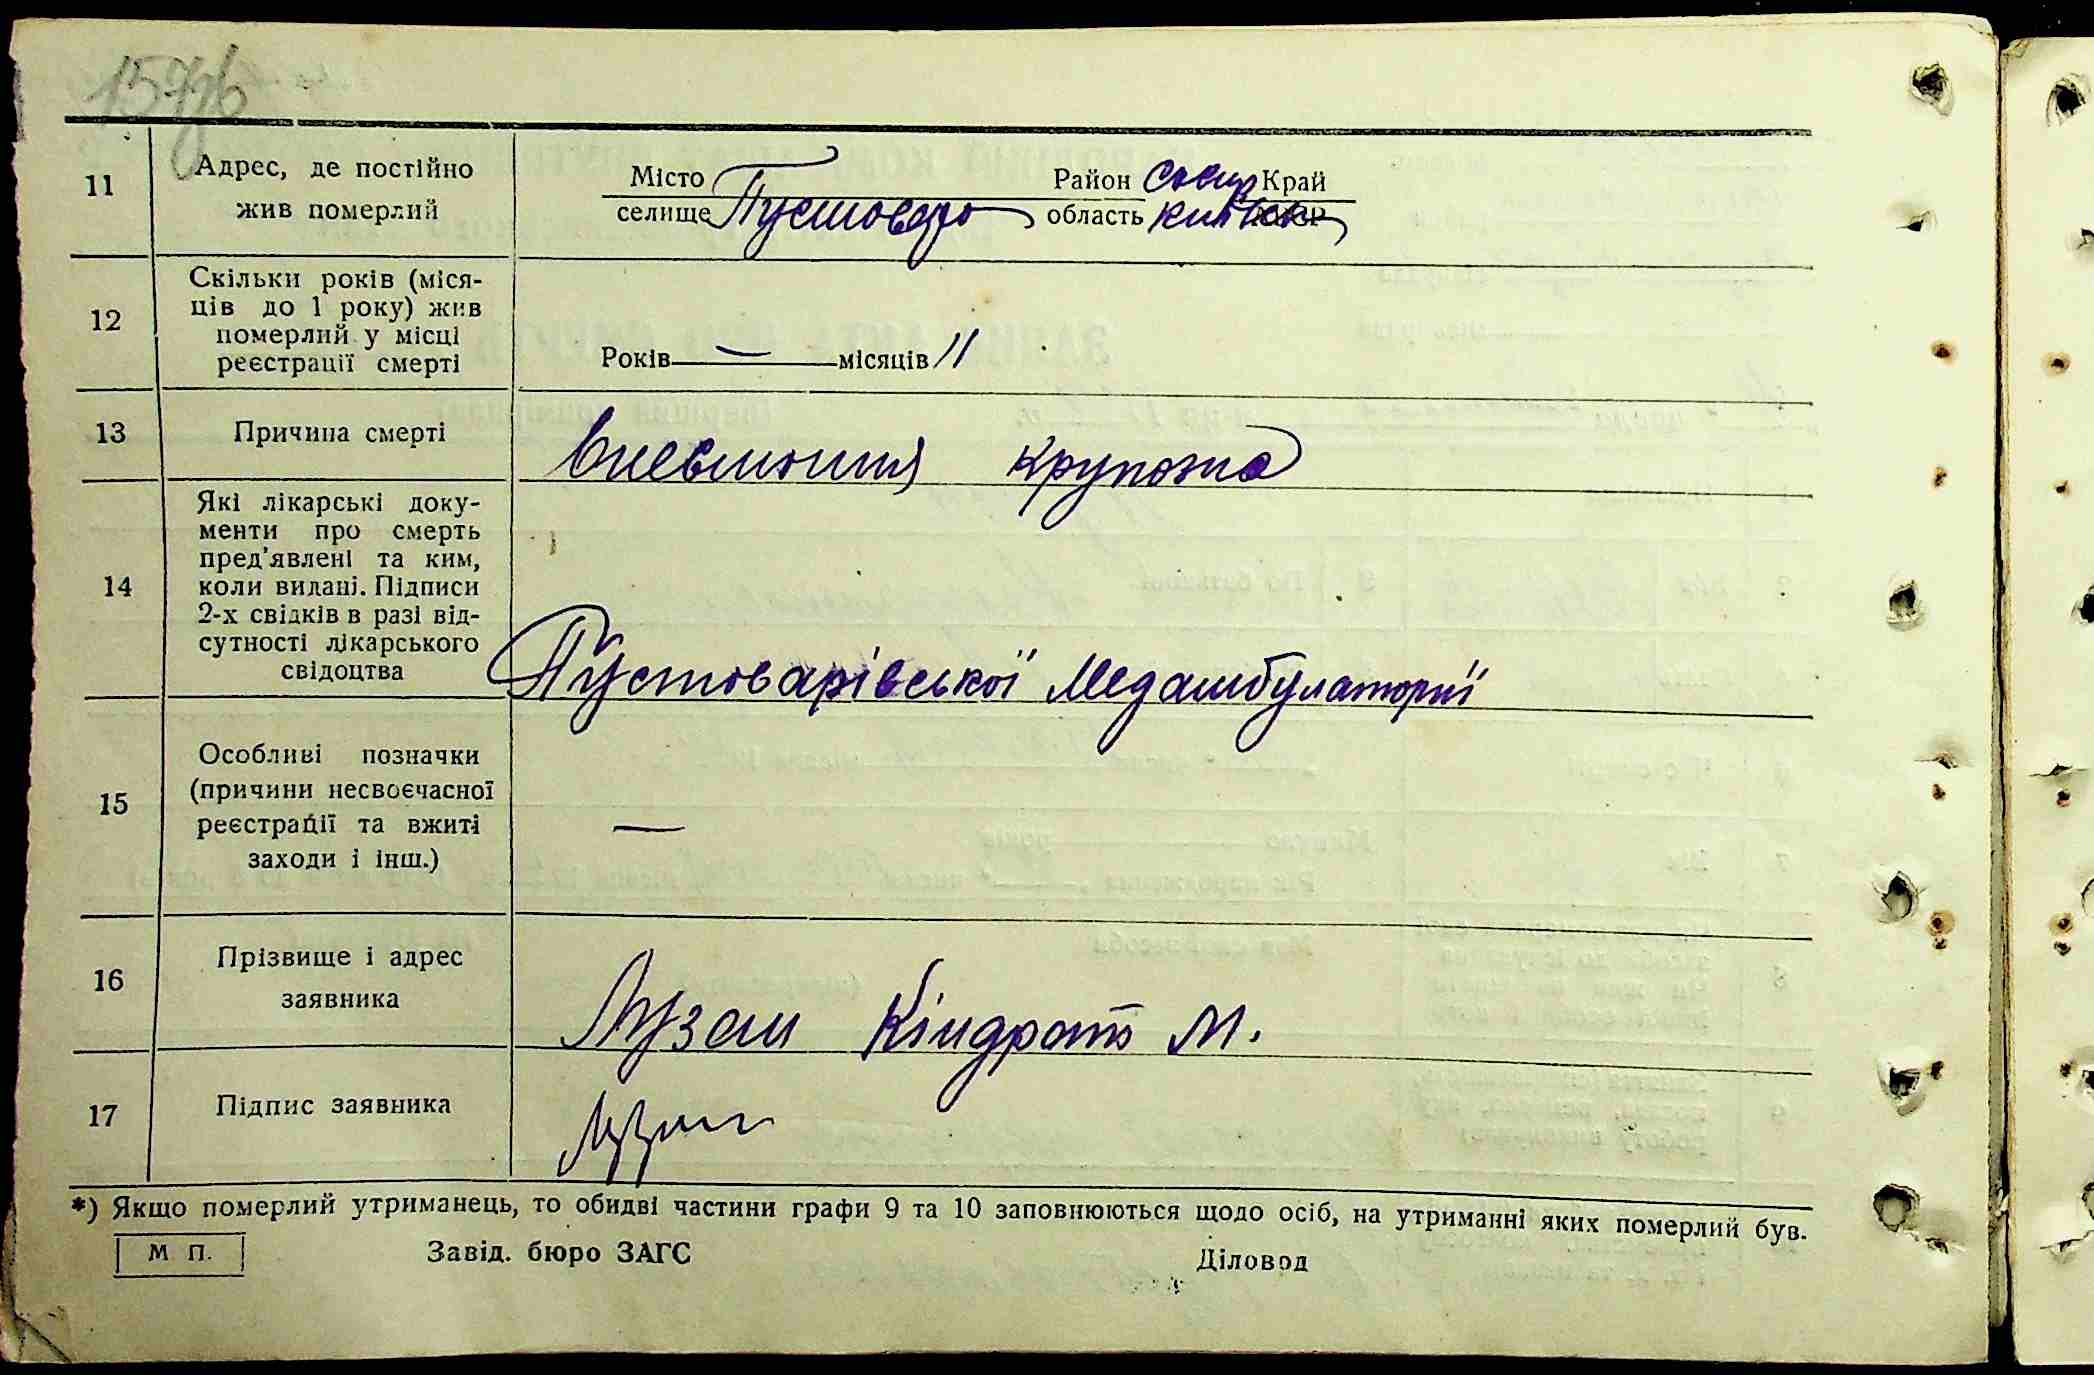 1576
11 Адрес, де постійно
жив померлий
Місто селище Пустовар Район Сквир Край
область Київськ
12 Скільки років (міся-
ців до 1 року) жив
померлий у місці
реєстрації смерті
Років — місяців 11
13 Причина смерті
Внєвмонія крупозна
14 Які лікарські доку-
менти про смерть
пред'явлені та ким,
коли видані. Підписи
2-х свідків в разі від-
сутності лікарського
свідоцтва
Пустоварівської Медамбулаторії
15 Особливі позначки
(причини несвоєчасної
реєстрації та вжиті
заходи і інш.)
—
16 Прізвище і адрес
заявника
Лузан Кіндрат М.
17 Підпис заявника
Лузан
*) Якщо померлий утриманець, то обидві частини графи 9 та 10 заповнюються щодо осіб, на утриманні яких померлий був.
М П. Завід. бюро ЗАГС Діловод